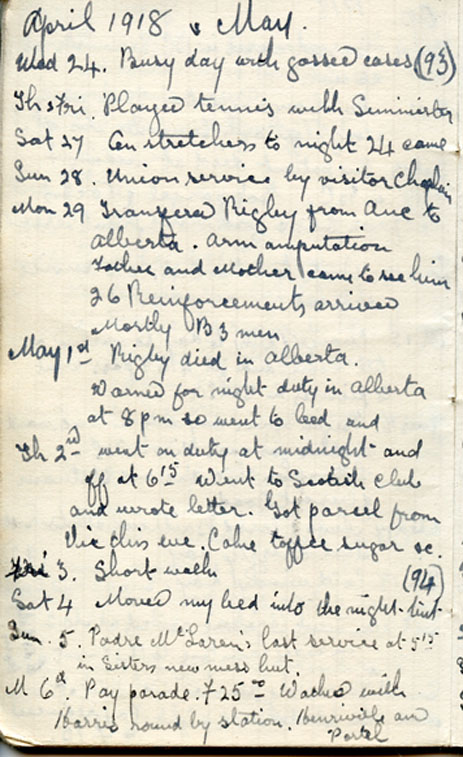 April 1918 & May.
Wed 24. Busy day with gassed cases (93)
Th & Fri. Played tennis with Siminister
Sat 27 On stretchers to night 24 came
Sun 28. Union service by visitor Chaplain
Mon 29 Transfered Rigby from Ave to
Alberta. Arm amputation
Father and Mother came to see him
26 Reinforcements arrived
Mostly B3 men
May 1st Rigby died in Alberta.
Warned for night duty in Alberta
at 8 pm so went to bed and
Th 2nd went on duty at midnight and
off at 6 15 Went to Scotish Club
and wrote letter. Got parcel from
Vic this eve. Cake toffee sugar &c.
Fri 3. Short walk (94)
Sat 4 Moved my bed into the night-tent
Sun. 5. Padre McLaren's last service at 5 15
in Sisters new mess hut.
M 6th. Pay parade. F 25 00 Walked with
Harris round by station. Henriville and
Portel